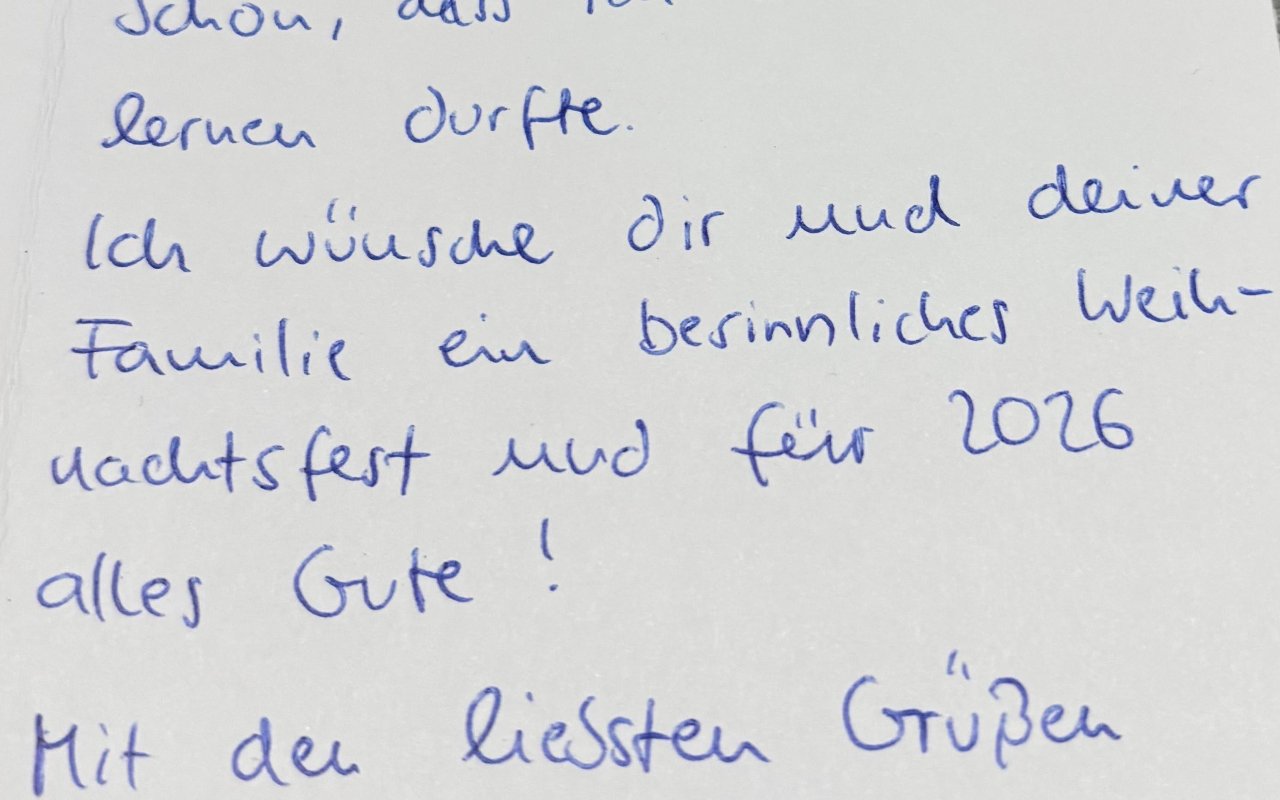 schön, dass ich
lernen durfte.
Ich wünsche dir und deiner
Familie ein besinnliches Weih-
nachtsfest und für 2026
alles Gute!
Mit den liebsten Grüßen